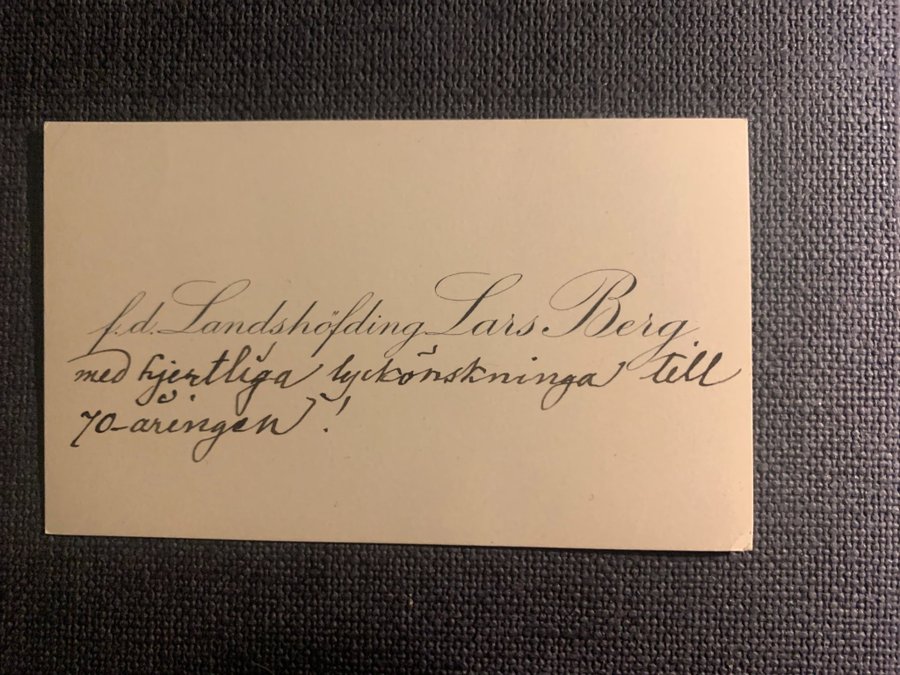 f.d. Landshöfding Lars Berg
med hjertliga lyckönskningar till
70-åringen!